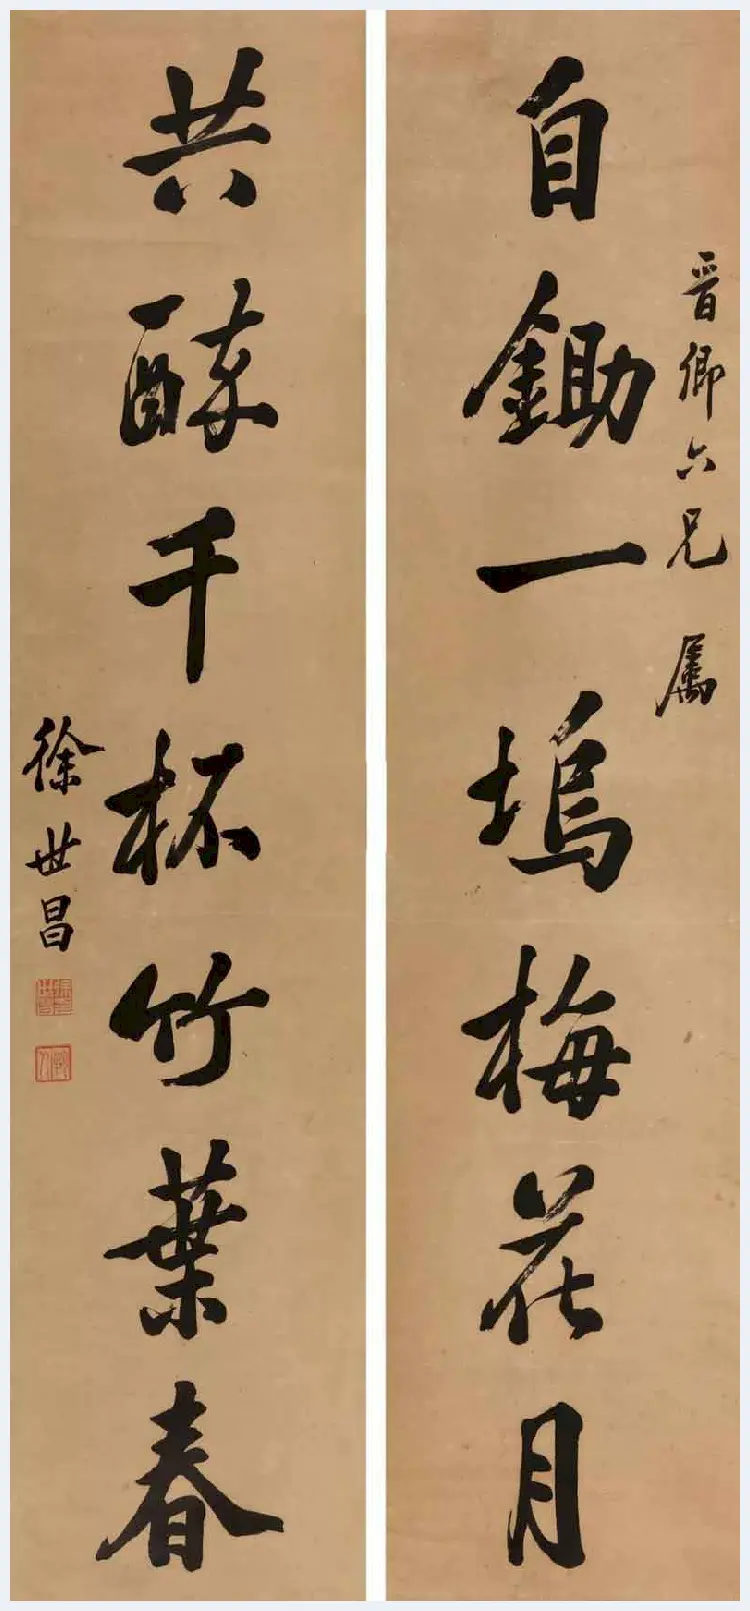 晋卿六兄属
自鋤一塢梅花月
共醉千杯竹葉春
徐世昌